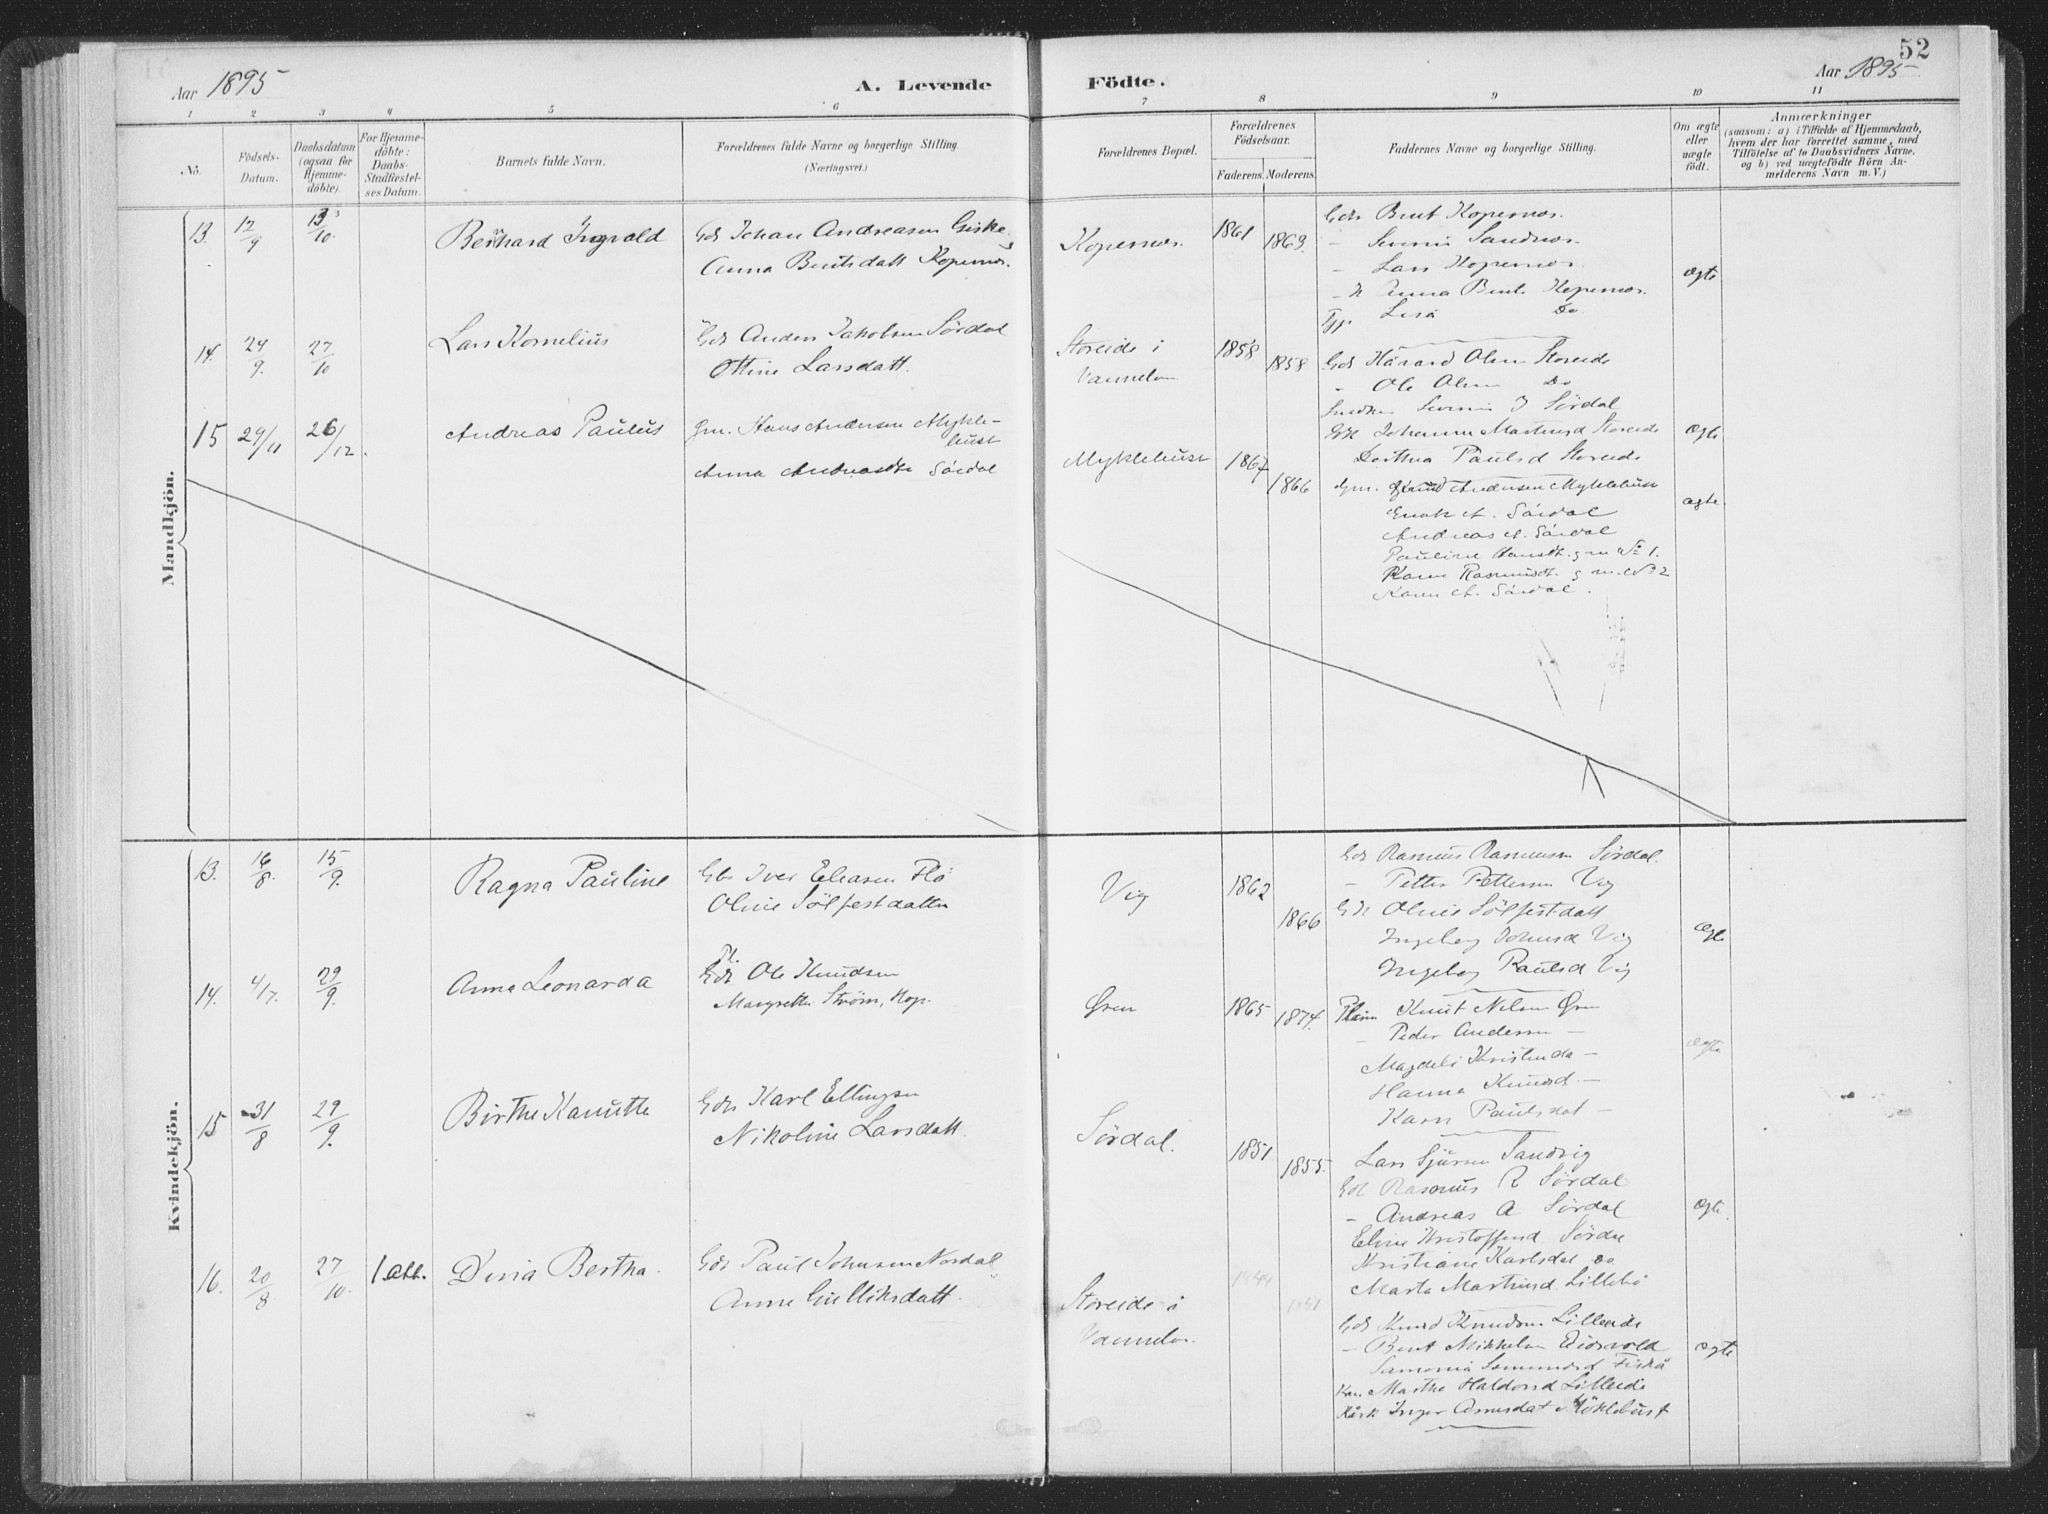 52
Aar 1895
A. Levende
Födte.
Aar 1895
1 2 3 4 5 6 7 8 9 10 11
No.
Födsels-
Datum.
Daabsdatum
(ogsaa for
Hjemme-
döbte).
For Hjemme-
döbte:
Daabs-
Stadfæstel-
ses Datum.
Barnets fulde Navn.
Forældrenes fulde Navne og borgerlige Stilling.
(Næringsvei.)
Forældrenes Bopæl.
Forældrenes
Födselsaar.
Faderens. Moderens.
Faddernes Navne og borgerlige Stilling.
Om ægte
eller
uægte
födt.
Anmærkninger
(saasom: a) i Tilfælde af Hjemmedaab,
hvem der har forrettet samme, med
Tilföielse af to Daabsvidners Navne.
og b) ved uægtefödte Börn An-
melderens Navn m. V.)
Mandkjön.
13. 12/9 13/10. Bernhard Ingvald
Gdr Johan Andreasen Giske
Anna Bentsdatt Kopernæs.
Kopernæs. 1861 1869
Gdr Bent Kopernæs.
- Severin Sandnæs.
- Lars Kopernæs.
- K Anna Bents Kopernæs.
Lisa Do
ægte
14. 24/9. 27/10 Lars Kornelius
Gdr Anders Jakobsen Sördal
Ottine Larsdatt.
Storeide i
Vannelven
1858 1858
Gdr Håvard Olsen Storeide
- Ole Olsen Do
Severin J Sördal
Johanne Martinsd Storeide
Dorthea Paulsd Storeide
ægte
15 29/11 26/12. Andreas Paulus
Gm. Hans Andersen Mykle-
bust
Anna Andreasdtr Sördal
Myklebust 1867 1866
Gm. Knud Andersen Myklebust
Enok A. Sördal
Andreas A. Sördal
Pauline Hansdt. gm No 1.
Karen Rasmusdt. gm. No 2
Karen A. Sördal.
ægte
Kvindekjön.
13. 16/8. 15/9. Ragna Pauline
Gbr Iver Eliasen Flö
Oline Sölfestdatter
Vig 1862 1866
Gdr Rasmus Rasmussen Sördal.
- Petter Pettersen Vig
Oline Sölfestdatt
Ingeborg Johnsd Vig
Ingeborg Paulsd Vig
ægte
14. 4/7. 29/9. Anna Leonarda
Pl.
Gdr Ole Knudsen
Margrethe Ström, Kop.
Ören 1865 1874.
Knut Nilsen Ören
- Peder Andersen -
Magdeli Kristinda -
Hanna Knudsd. -
Karn Paulsdat -
ægte
15 31/8 29/9. Birthe Kanutte
Gdr Karl Ellingsen
Nikoline Larsdatt.
Sördal. 1851 1855.
Lars Sjursen Sandvig
Gdr Rasmus R Sördal
- Andreas A Sördal
Eline Kristoffersd Sördal
Kristiane Karlsdat Do
Marta Martinsd. Lillebö
ægte.
16. 20/8 27/10. Dina Bertha.
Gdr Paul Johnsen Nordal
Anne Gulliksdatt.
Storeide i
Vannelven.
Gdr Knud Knudsen Lilleeide
- Bent Mikkelsen Eidsvold
Samona Samundsd Fiskå
Marthe Haldorsd Lilleeide
Inger Arnesdat Möklebust
ægte